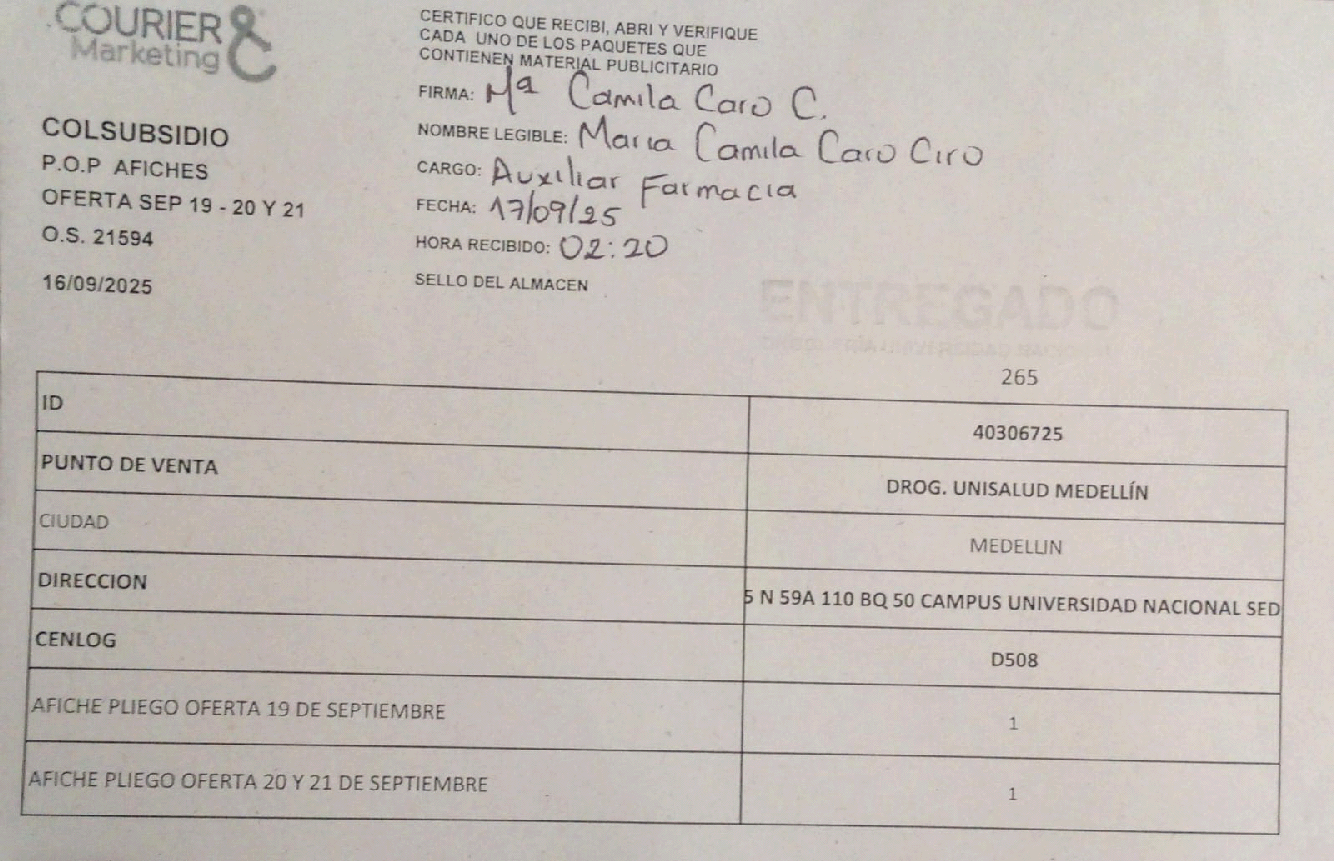 COURIER &
Marketing
CERTIFICO QUE RECIBI, ABRI Y VERIFIQUE
CADA UNO DE LOS PAQUETES QUE
CONTIENEN MATERIAL PUBLICITARIO
FIRMA: Mª Camila Caro C.
NOMBRE LEGIBLE: Maria Camila Caro Ciro
CARGO: Auxiliar Farmacia
FECHA: 17/09/25
HORA RECIBIDO: 02:20
SELLO DEL ALMACEN
COLSUBSIDIO
P.O.P AFICHES
OFERTA SEP 19 - 20 Y 21
O.S. 21594
16/09/2025
ENTREGADO
UNIVERSIDAD
265
ID 40306725
PUNTO DE VENTA DROG. UNISALUD MEDELLÍN
CIUDAD MEDELLIN
DIRECCION 5 N 59A 110 BQ 50 CAMPUS UNIVERSIDAD NACIONAL SED
CENLOG D508
AFICHE PLIEGO OFERTA 19 DE SEPTIEMBRE 1
AFICHE PLIEGO OFERTA 20 Y 21 DE SEPTIEMBRE 1